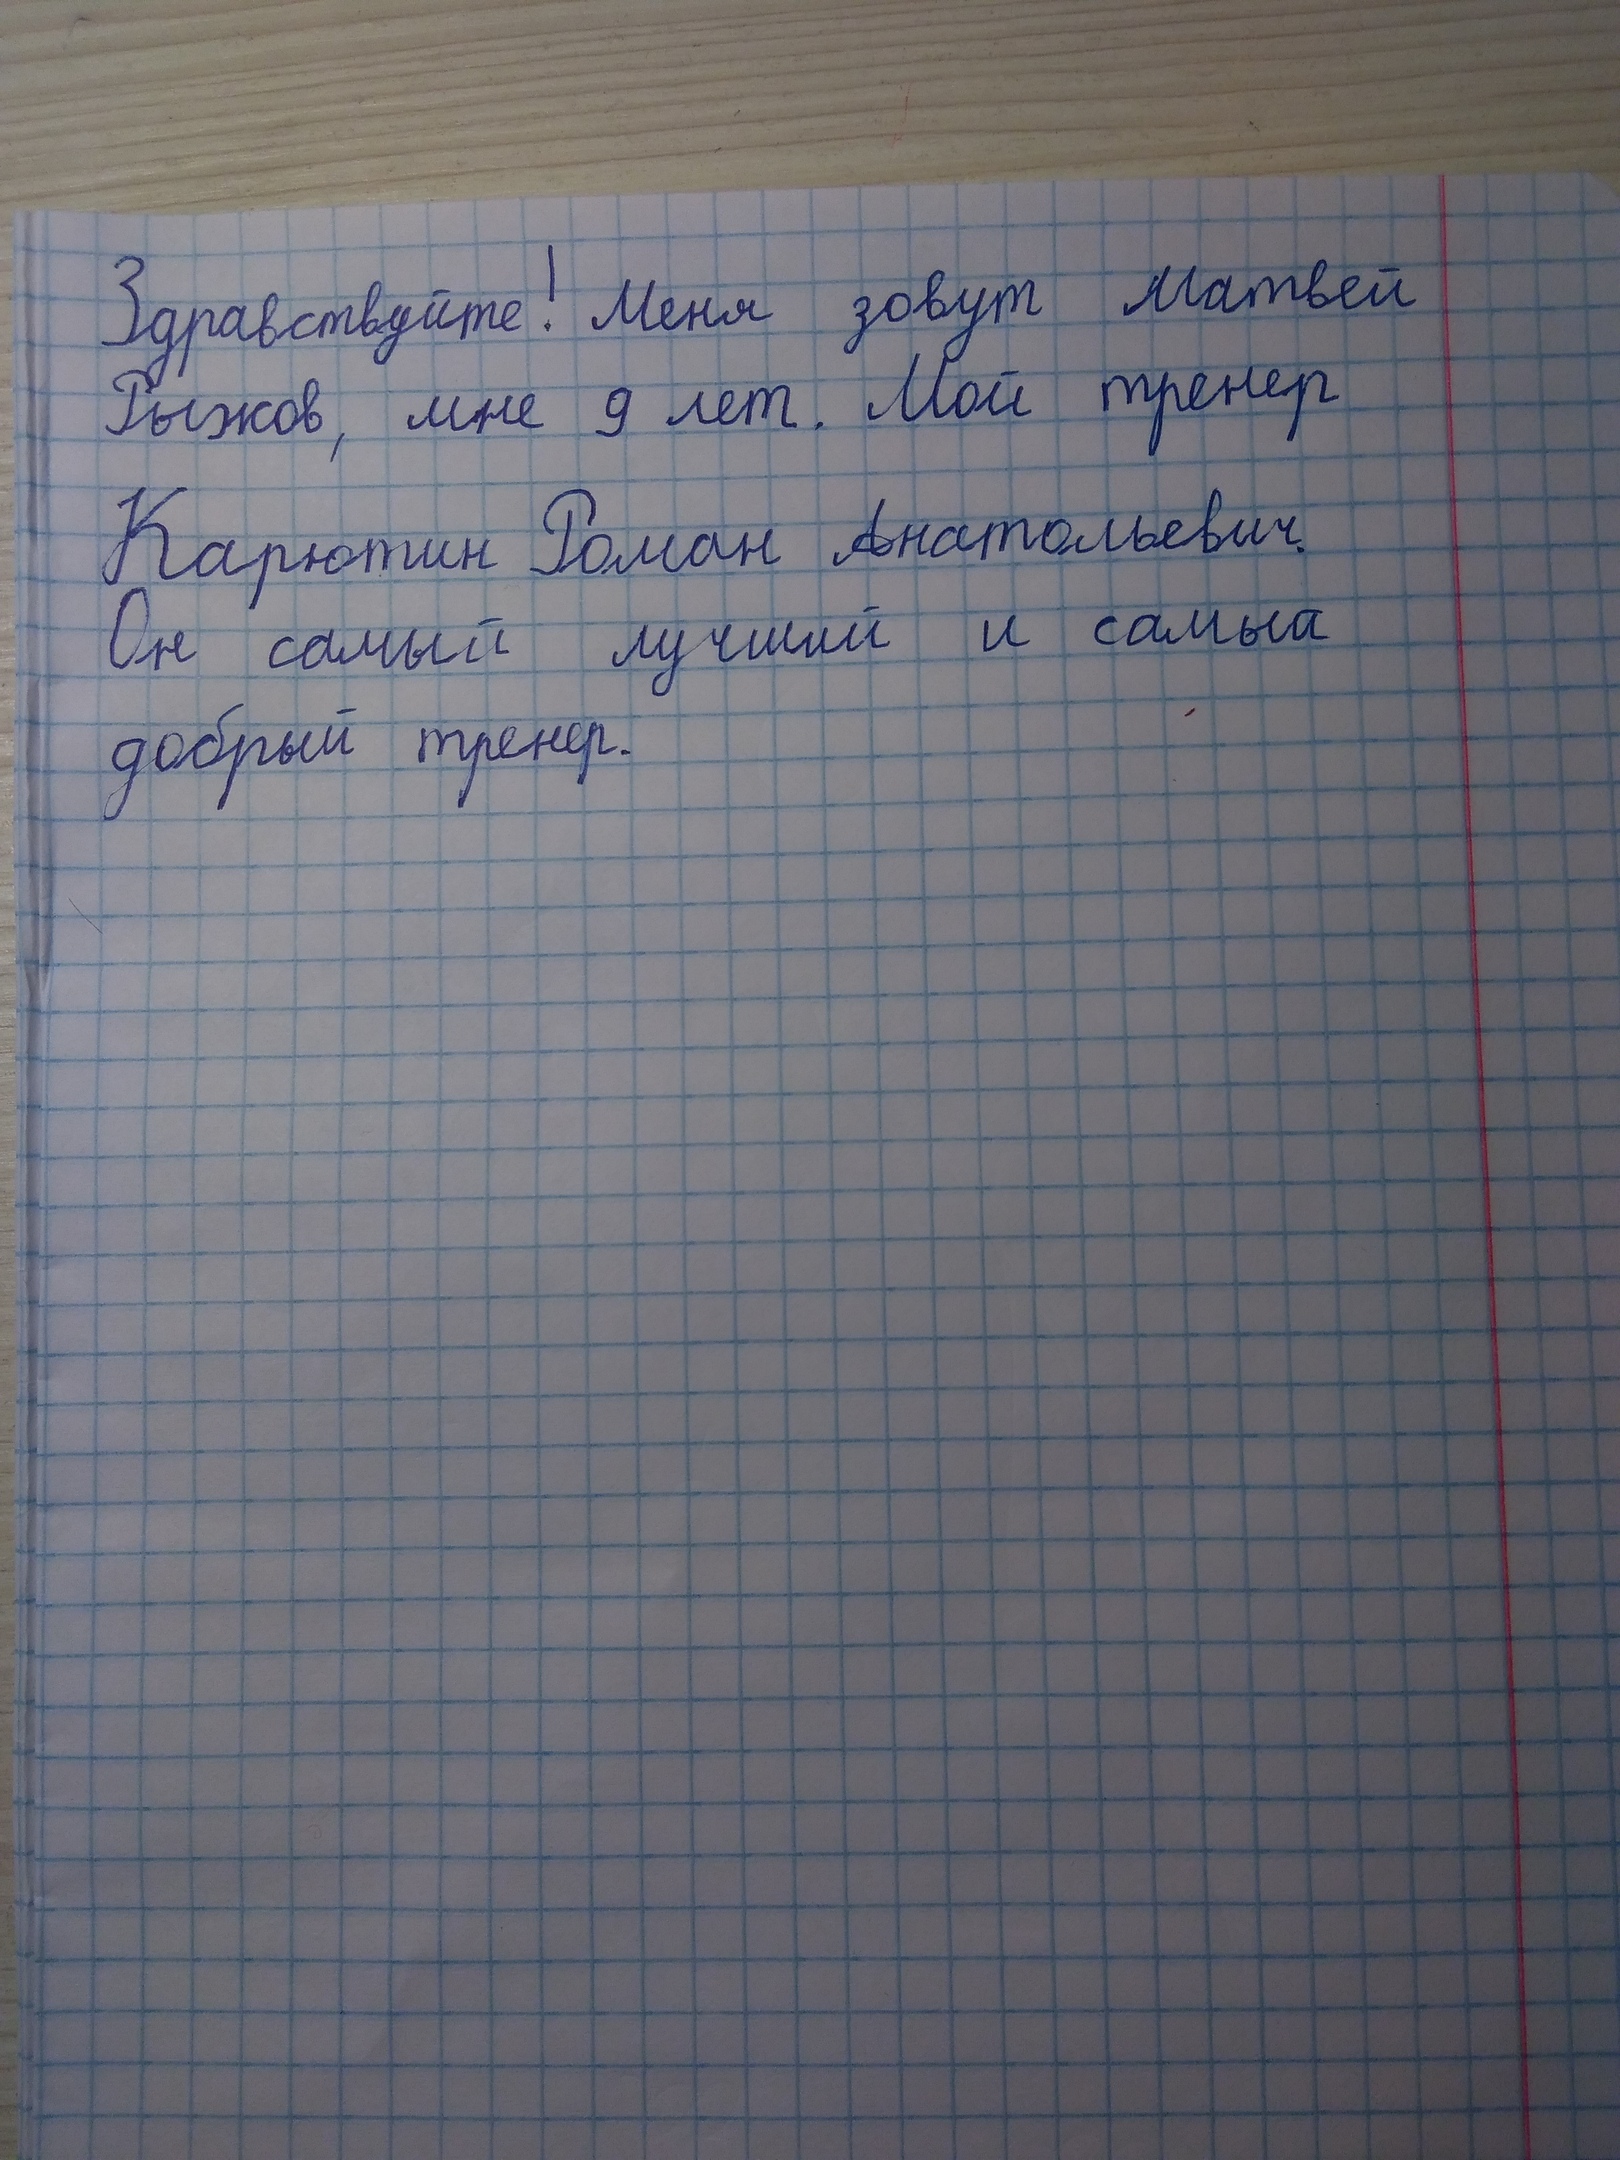 Здравствуйте! Меня зовут Матвей
Рыжов, мне 9 лет. Мой тренер
Карютин Роман Анатольевич.
Он самый лучший и самый
добрый тренер.